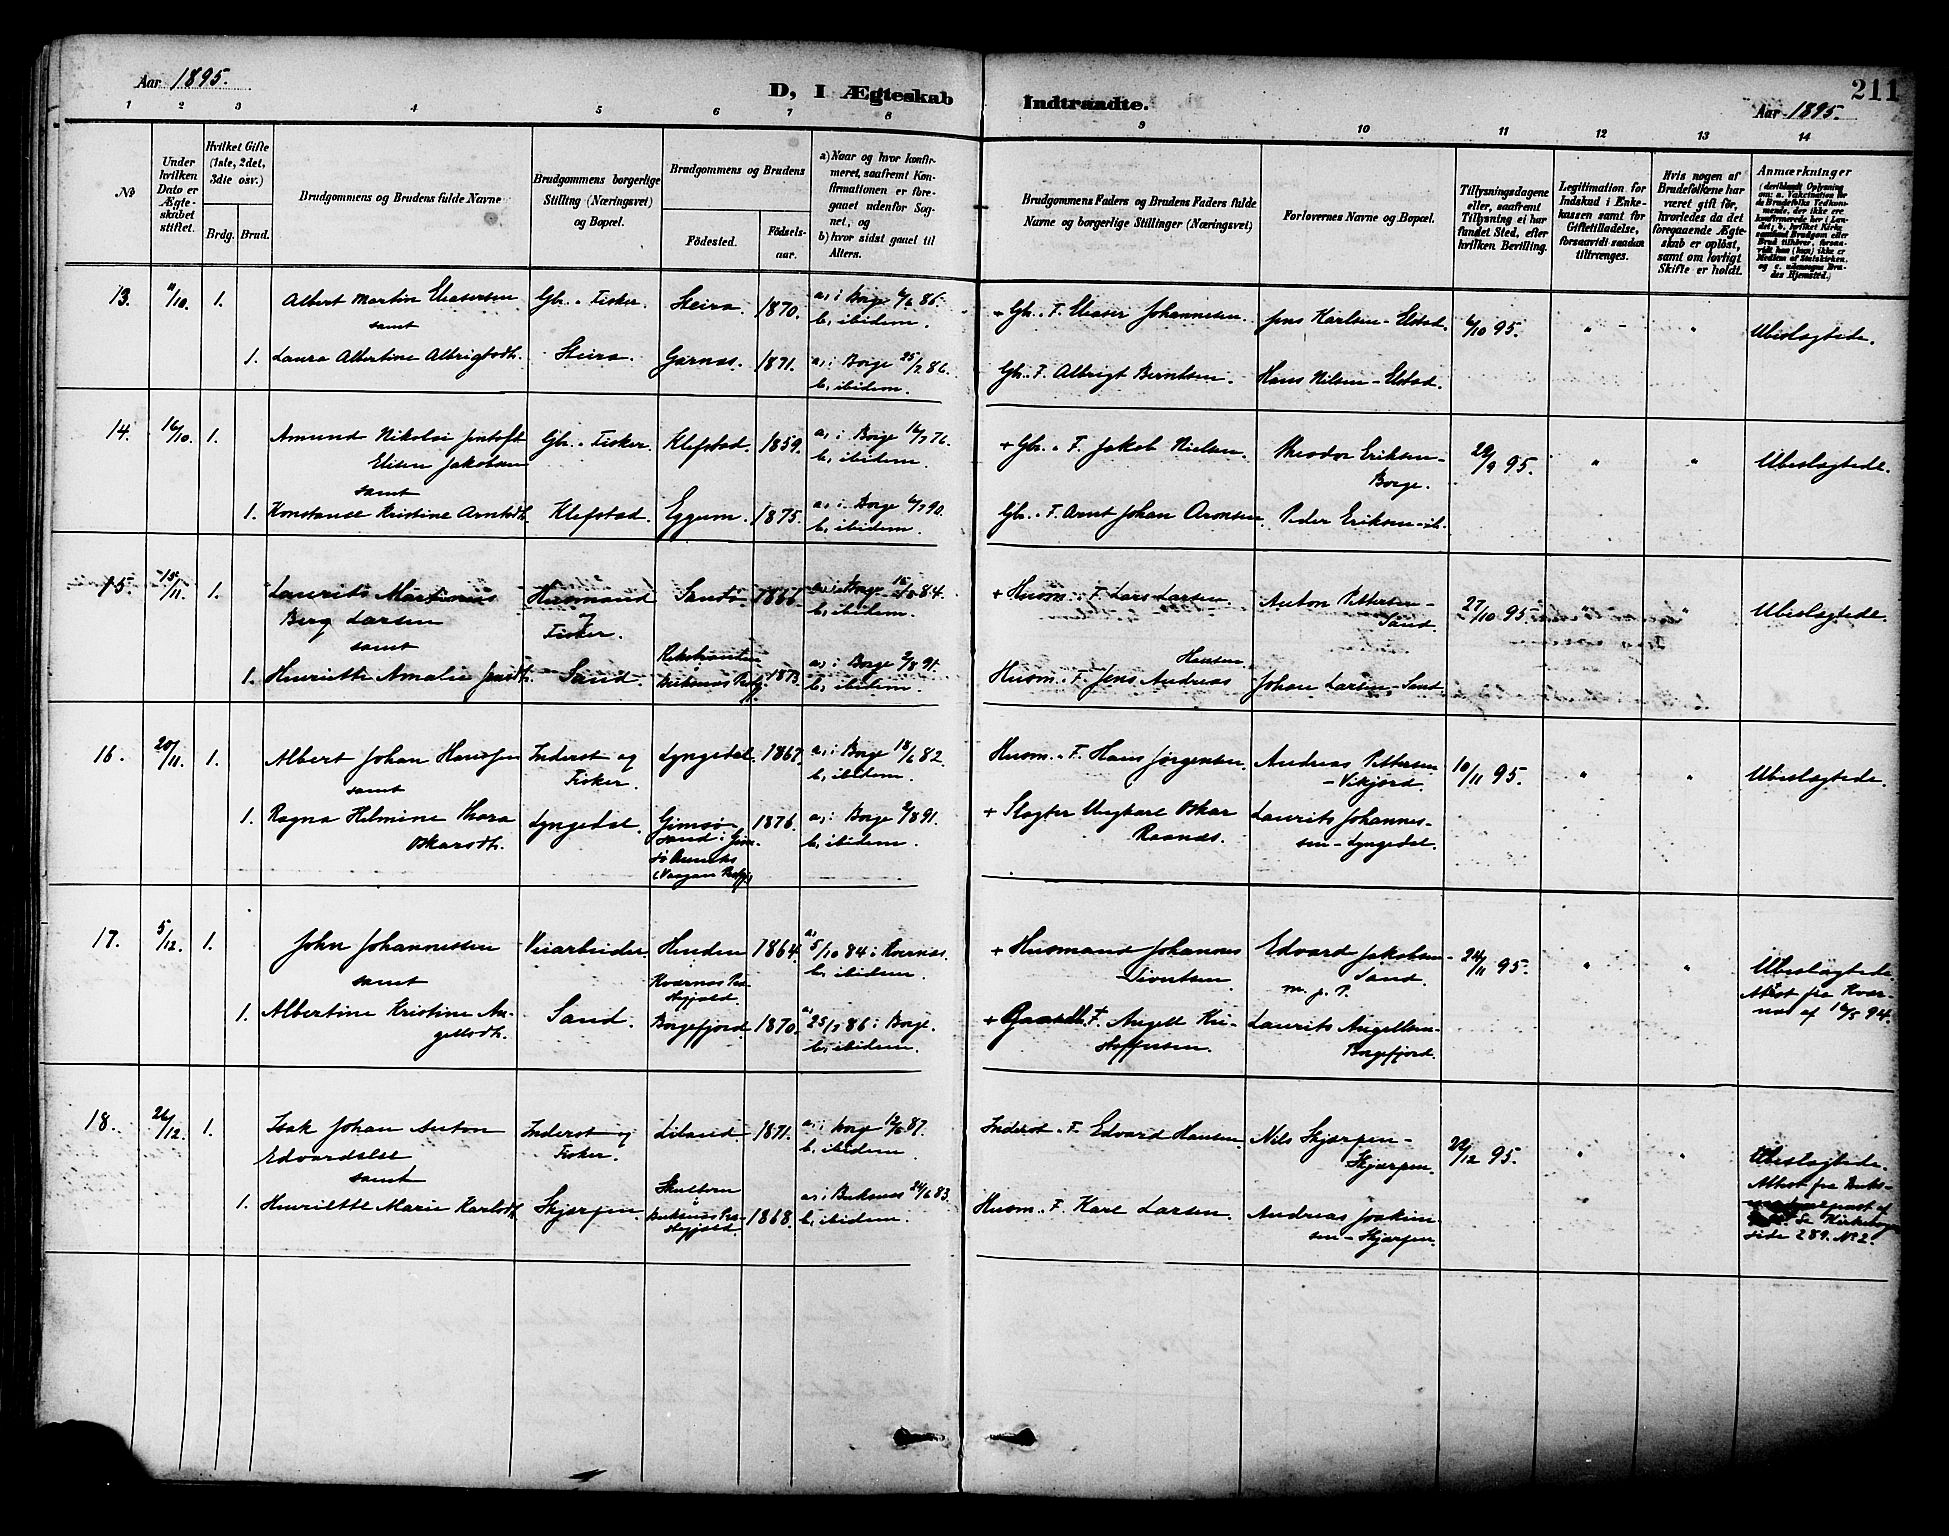 Aar 1895.
D, I Ægteskab Indtraadte.
211
Aar 1895.
1 2 3 4 5 6 7 8 9 10 11 12 13 14
No
Under hvilken Dato er Ægteskabet stiftet.
Hvilket Gifte (1ste, 2det, 3die osv.)
Brdg. Brud.
Brudgommens og Brudens fulde Navne
Brudgommens borgerlige Stilling (Næringsvei) og Bopæl.
Brudgommens og Brudens
Födested. Födselsaar.
a) Naar og hvor konfirmeret, saafremt Konfirmationen er foregaaet udenfor Sognet, og
b) hvor sidst gaaet til Alters.
Brudgommens Faders og Brudens Faders fulde Navne og borgerlige Stillinger (Næringsvei)
Forlovernes Navne og Bopæl.
Tillysningsdagene eller, saafremt Tillysning ei har fundet Sted, efter hvilken Bevilling.
Legitimation for Indskud i Enkekassen samt for Giftetilladelse, forsaavidt saadan tiltrænges.
Hvis nogen af Brudefolkene har været gift för, hvorledes da det foregaaende Ægteskab er oplöst, samt om lovligt Skifte er holdt.
Anmærkninger
13. 11/10. 1. Albert Martin Eliasersen Gbr. . Fisker. Steira 1870. a, i Borge 6/6 86. + Gbr. . F. Eliaser Johannesen. Jens Karlsen - Elstad. 6/10 95. " " Ubeslægtede.
samt b, ibidem.
1. Laura Albertine Albrigtsdt. Steira. Garnæs. 1871. a, i Borge 25/7 86. Gbr. . F. Albrigt Berntsen. Hans Nilsen - Elstad.
b, ibidem.
14. 16/10. 1. Amund Nikolai Jentoft Gbr. . Fisker. Klefstad. 1859. a, i Borge 16/7 76. + Gbr. . F. Jakob Nielsen. Theodor Eriksen - 29/9 95. " " Ubeslægtede.
Elisen Jakobsen b, ibidem. Borge.
samt
1. Konstance Kristine Arntsdt. Klefstad. Eggum. 1875. a, i Borge 6/7 90. Gbr. . F. Arnt Johan Aronsen. Peder Eriksen - ib.
b, ibidem.
15. 15/11. 1. Laurits Martinus Husmand Sand 1866. a, i Borge 84. + Husm. . F. Lars Larsen Anton Pettersen - 27/10 95. " Ubeslægtede.
Berg Larsen og b, ibidem. Sand.
samt Fisker.
1. Henriette Amalie Jensdt. Sand. Buksnæs Pstgj. 1873. a, i Borge 2/8 91. Husm. . F. Jens Andreas Hansen Johan Larsen, Sand.
b, ibidem.
16. 20/11. 1. Albert Johan Hansen Inderst og Lyngedal. 1867. a, i Borge 18/6 82. Husm. . F. Hans Jørgensen. Andreas Pettersen 10/11 95. " " Ubeslægtede.
samt Fisker. b, ibidem. - Vikjord.
1. Ragna Helmine Thora Lyngedal. Gimsø- 1876. a, i Borge 2/8 91. + Slagter Ungkarl Oskar Laurits Johannes-
Oskarsdt. sand i Gim- b, ibidem. Raanæs. sen - Lyngedal.
sø Annexs
(Vaagan Pstgj.)
17. 5/12. 1. John Johannessen Veiarbeider. Hinden 1864. a, 5/10 84 i Kvernæs. + Husmand Johannes Edvard Jakobsen - 24/11 95. " " Ubeslægtede.
samt Kværnæs Præ- b, ibidem. Sivertsen. Sand. Attest fra Kvær-
stegjeld. m. p. P. næs af 16/5 94.
1. Albertine Kristine An- Sand. Borgefjord. 1870. a, 25/7 86 i Borge. + Gaardbr. F. Angell Kri- Laurits Angellsen -
gellsdt. b, ibidem. stoffersen. Borgefjord.
18. 26/12. 1. Isak Johan Anton Inderst og Liland 1871. a, i Borge 12/6 87. Inderst . F. Edvard Hansen. Nils Skjærpen - 22/12 95. " " Ubeslægtede.
Edvardsen Fisker. b, ibidem. Skjærpen. Attest fra Buks-
samt
1. Henriette Marie Karlsdt. Skjærpen. Buksnæs Præ- 1868. a, i Buksnæs 24/6 83. Husm. . F. Karl Larsen. Andreas Joakim- Se Kirkebogen
stegjeld. b, ibidem. sen - Skjærpen. side 289. No 2.